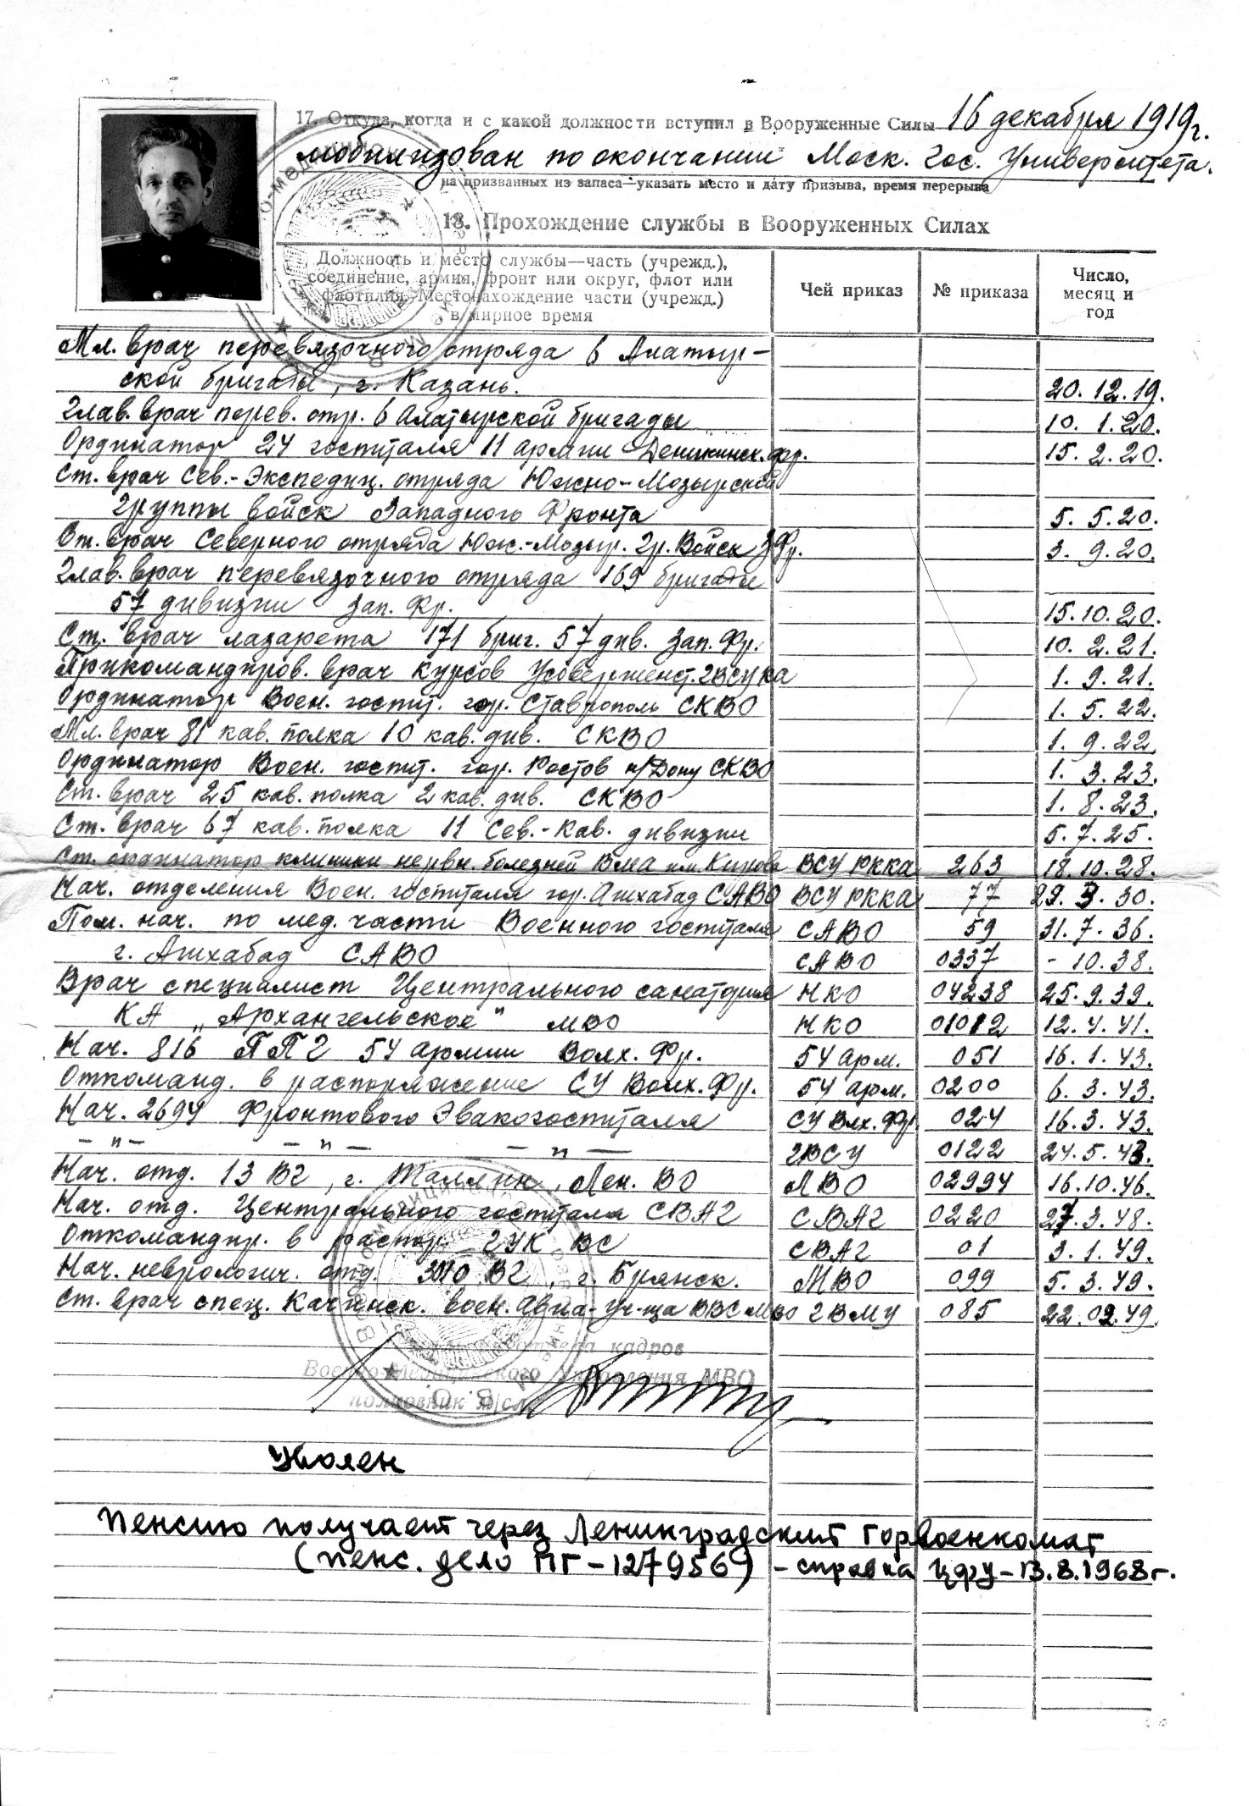 17. Откуда, когда и с какой должности вступил в Вооруженные Силы 16 декабря 1919г.
мобилизован по окончании Моск. Гос. Университета.
на призванных из запаса—указать место и дату призыва, время перерыва
18. Прохождение службы в Вооруженных Силах
Должность и место службы—часть (учрежд.), соединение, армия, фронт или округ, флот или флотилия. Местонахождение части (учрежд.) в мирное время
Чей приказ
№ приказа
Число, месяц и год
Мл. врач перевязочного отряда в Алатыр-
ской бригады, г. Казань. 20.12.19.
Глав. врач перев. отр. в Алатырской бригады 10. 1.20.
Ординатор 24 госпиталя 11 армии Деникинск. фр. 15. 2.20.
Ст. врач Сев.-Экспедиц. отряда Южно-Мозырской
Группы войск Западного Фронта 5. 5.20.
Ст. врач Северного отряда Юж.-Мозыр. Гр. Войск З.Фр. 3. 9.20.
Глав. врач перевязочного отряда 169 бригады
57 дивизии Зап. Фр. 15.10.20.
Ст. врач лазарета 171 бриг. 57 див. Зап. Фр. 10. 2.21.
Прикомандиров. врач курсов Усовершенст. ГВСУКА 1. 9.21.
Ординатор Воен. госпит. гор. Ставрополь СКВО 1. 5.22.
Мл. врач 81 кав. полка 10 кав. див. СКВО 1. 9.22.
Ординатор Воен. госпит. гор. Ростов н/Дону СКВО 1. 3.23.
Ст. врач 25 кав. полка 2 кав. див. СКВО 1. 8.23.
Ст. врач 67 кав. полка 11 Сев.-Кав. дивизии 5. 7.25.
Ст. ординатор клиники нервн. болезней ВМА им. Кирова ВСУ РККА 263 18.10.28.
Нач. отделения Воен. госпиталя гор. Ашхабад САВО ВСУ РККА 77 29.3.30.
Пом. нач. по мед. части Военного госпиталя САВО 59 31.7.36.
г. Ашхабад САВО САВО 0337 - 10.38.
Врач специалист Центрального санатория НКО 04238 25.9.39.
КА „Архангельское" МВО НКО 01012 12.4.41.
Нач. 816 ППГ 54 армии Волх. Фр. 54 арм. 051 16.1.43.
Откоманд. в распоряжение СУ Волх. Фр. 54 арм. 0200 6.3.43.
Нач. 2694 Фронтового Эвакогоспиталя СУ Влх. Фр. 024 16.3.43.
—"— —"— —"— ГВСУ 0122 24.5.43.
Нач. отд. 13 ВГ, г. Таллин, Лен. ВО ЛВО 02994 16.10.46.
Нач. отд. Центрального госпиталя СВАГ СВАГ 0220 27.3.48.
Откомандир. в распор. ГУК ВС СВАГ 01 3.1.49.
Нач. неврологич. отд. ВГ, г. Брянск. МВО 099 5.3.49.
Ст. врач спец. Качинск. воен. Авиа-Уч-ща ВВС МВО ГВМУ 085 22.02.49.
отдела кадров
Военно-Медицинского Управления МВО
полковник м/сл
Уволен
Пенсию получает через Ленинградский горвоенкомат
(пенс. дело ПГ-127956) - справка ЦФУ-13.8.1968г.